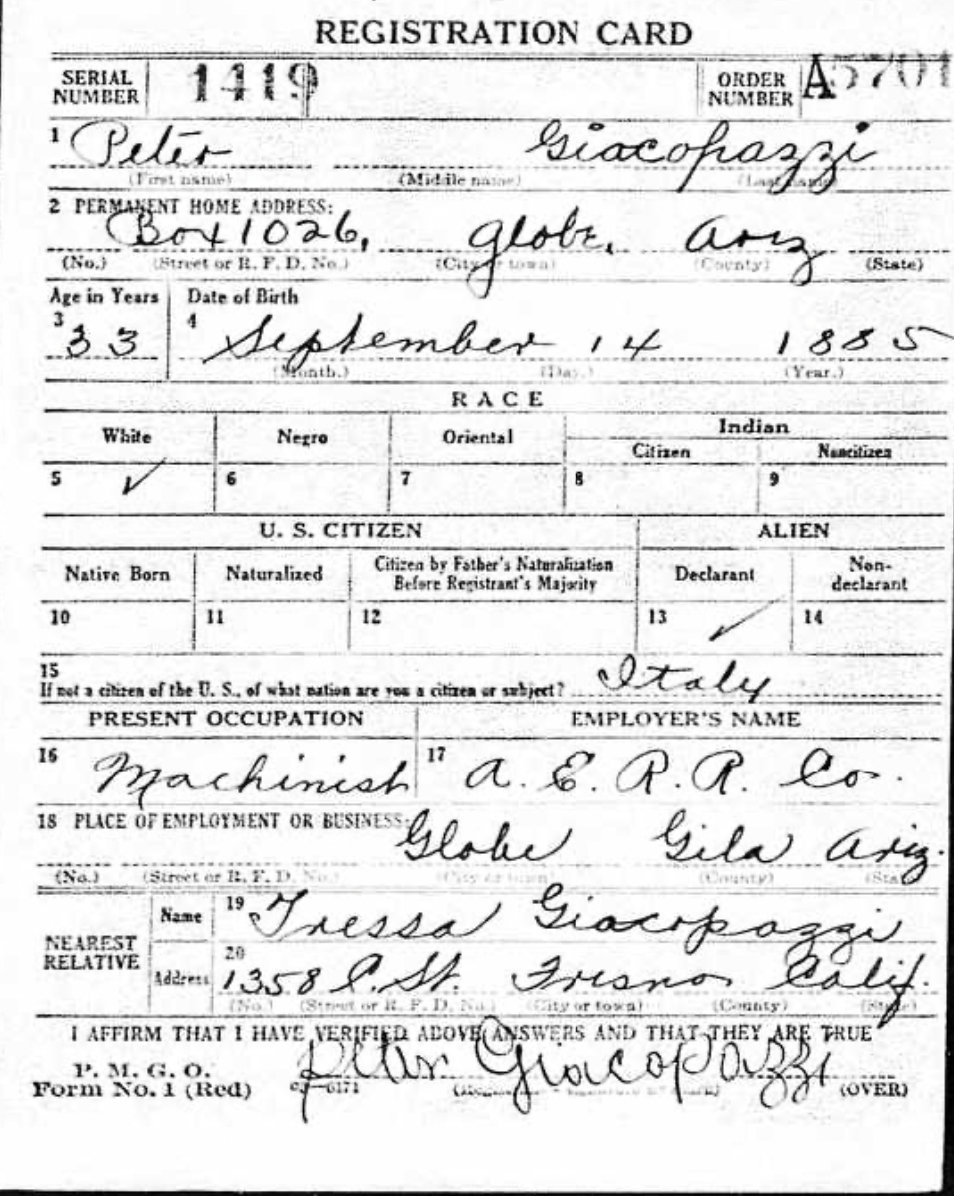 REGISTRATION CARD
SERIAL NUMBER 1419 ORDER NUMBER A5701
1 Peter Giacopazzi
(First name) (Middle name) (Last name)
2 PERMANENT HOME ADDRESS:
Box 1026, Globe, Ariz
(No.) (Street or R. F. D. No.) (City or town) (County) (State)
Age in Years Date of Birth
3 33 4 September 14 1885
(Month.) (Day.) (Year.)
RACE
White Negro Oriental Indian
Citizen Noncitizen
5 ✓ 6 7 8 9
U. S. CITIZEN ALIEN
Native Born Naturalized Citizen by Father's Naturalization Before Registrant's Majority Declarant Non-declarant
10 11 12 13 ✓ 14
15
If not a citizen of the U. S., of what nation are you a citizen or subject? Italy
PRESENT OCCUPATION EMPLOYER'S NAME
16 Machinist 17 A. E. R. R. Co.
18 PLACE OF EMPLOYMENT OR BUSINESS:
Globe Gila Ariz.
(No.) (Street or R. F. D. No.) (City or town) (County) (State)
NEAREST RELATIVE Name 19 Tressa Giacopazzi
Address 20 1358 P. St. Fresno Calif.
(No.) (Street or R. F. D. No.) (City or town) (County) (State)
I AFFIRM THAT I HAVE VERIFIED ABOVE ANSWERS AND THAT THEY ARE TRUE
P. M. G. O.
Form No. 1 (Red) Peter Giacopazzi (OVER)